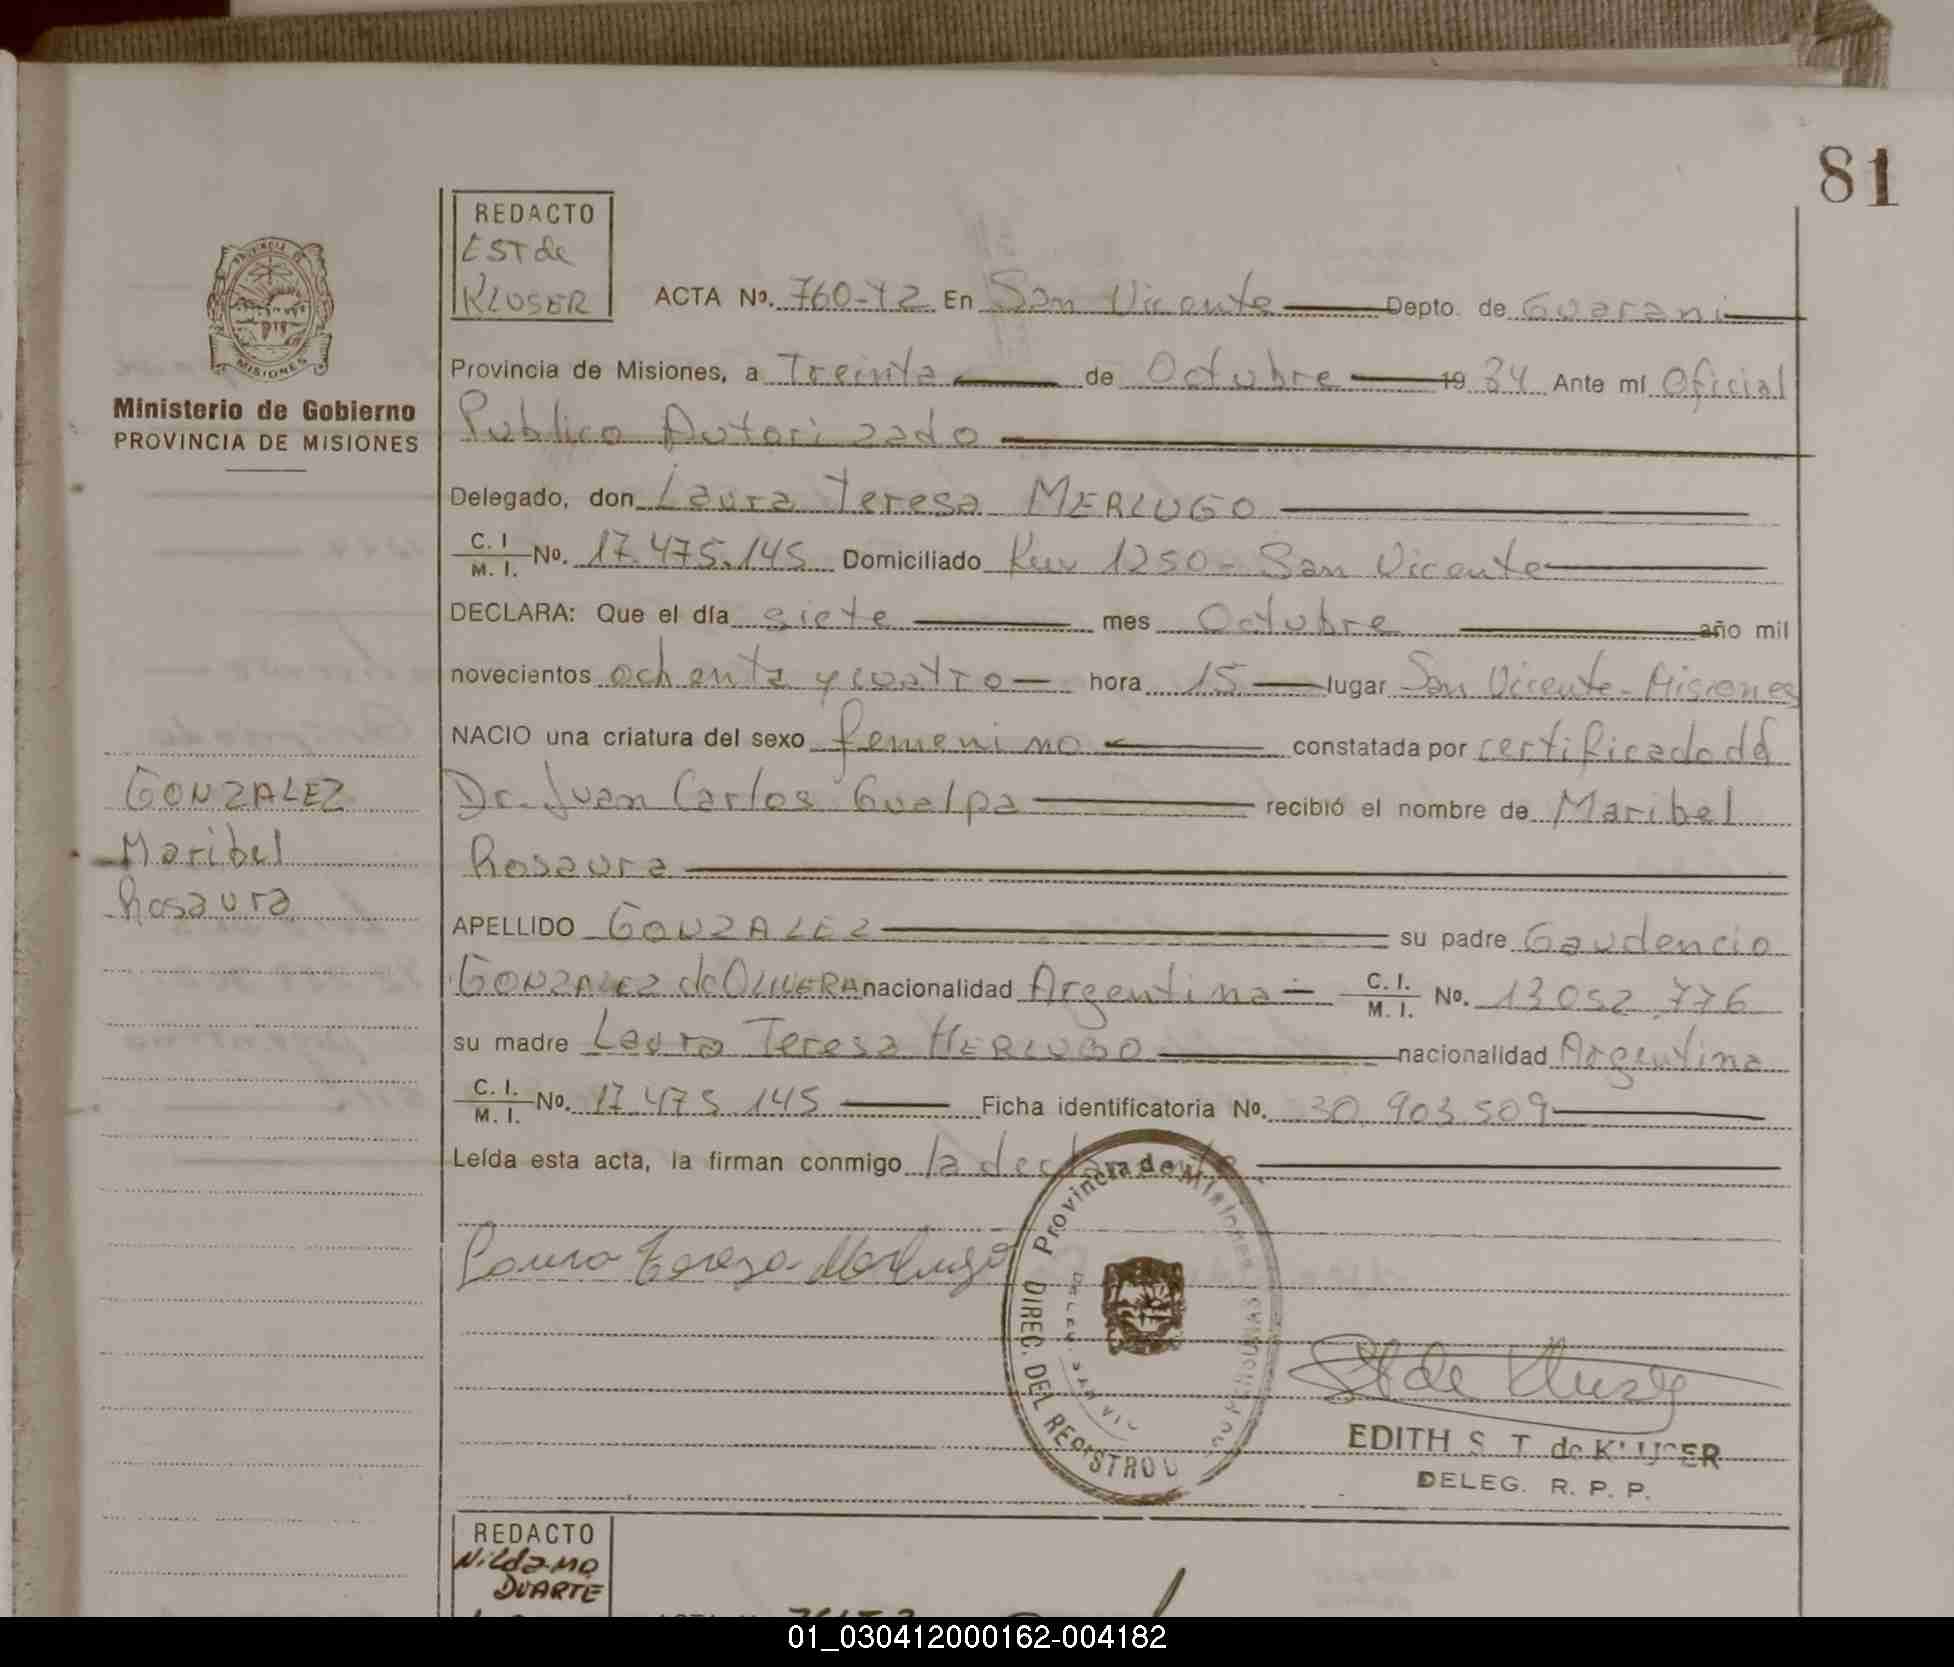 81
REDACTO
EST de
KLUSER
PROVINCIA DE
MISIONES
Ministerio de Gobierno
PROVINCIA DE MISIONES
ACTA Nº. 760-T2 En San Vicente Depto. de Guarani
Provincia de Misiones, a Treinta de Octubre 19 84 Ante mí Oficial
Publico Autorizado
Delegado, don Laura Teresa MERLUGO
C. I
M. I. Nº. 17.475.145 Domiciliado Km 1250 - San Vicente
DECLARA: Que el día siete mes Octubre año mil
novecientos ochenta y cuatro hora 15 lugar San Vicente - Misiones
NACIO una criatura del sexo femenino constatada por certificado del
Dr. Juan Carlos Gualpa recibió el nombre de Maribel
Rosaura
GONZALEZ
Maribel
Rosaura
APELLIDO GONZALEZ su padre Gaudencio
GONZALEZ de OLIVERA nacionalidad Argentina C. I.
M. I. Nº. 13.052.776
su madre Laura Teresa MERLUGO nacionalidad Argentina
C. I.
M. I. Nº. 17.475.145 Ficha identificatoria Nº. 30.903.509
Leída esta acta, la firman conmigo la declarante
Laura Tereza Merlugo
Provincia de Misiones
DIREC. DEL REGISTRO
DELEG. SAN VIC
PERSONAS
St de Kluser
EDITH S. T. de KLUSER
DELEG. R. P. P.
REDACTO
Nilda Ma
DUARTE
01_030412000162-004182